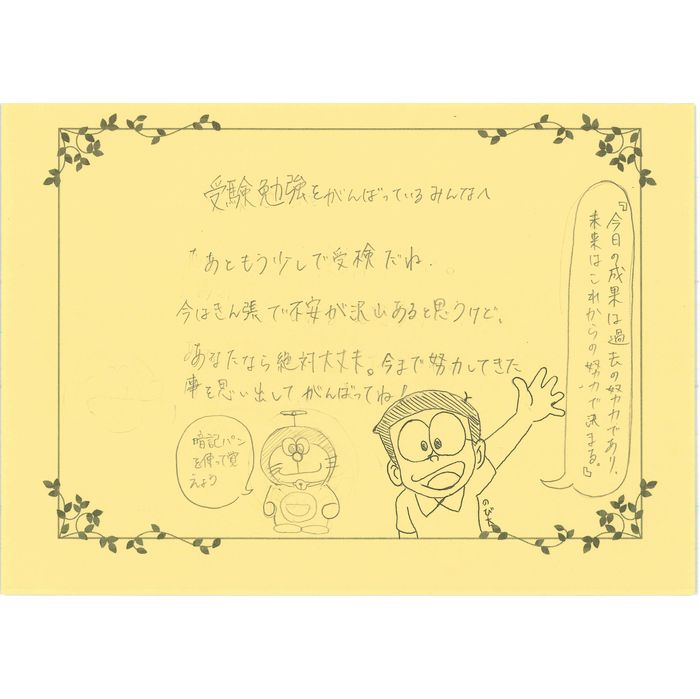 受験勉強をがんばっているみんなへ
あともう少しで受検だね.
今はきん張で不安が沢山あると思うけど、
あなたなら絶対大丈夫。今まで努力してきた
事を思い出してがんばってね!
『今日の成果は過去の努力であり、
未来はこれからの努力で決まる。』
暗記パン
を使って覚
えよう
のび太